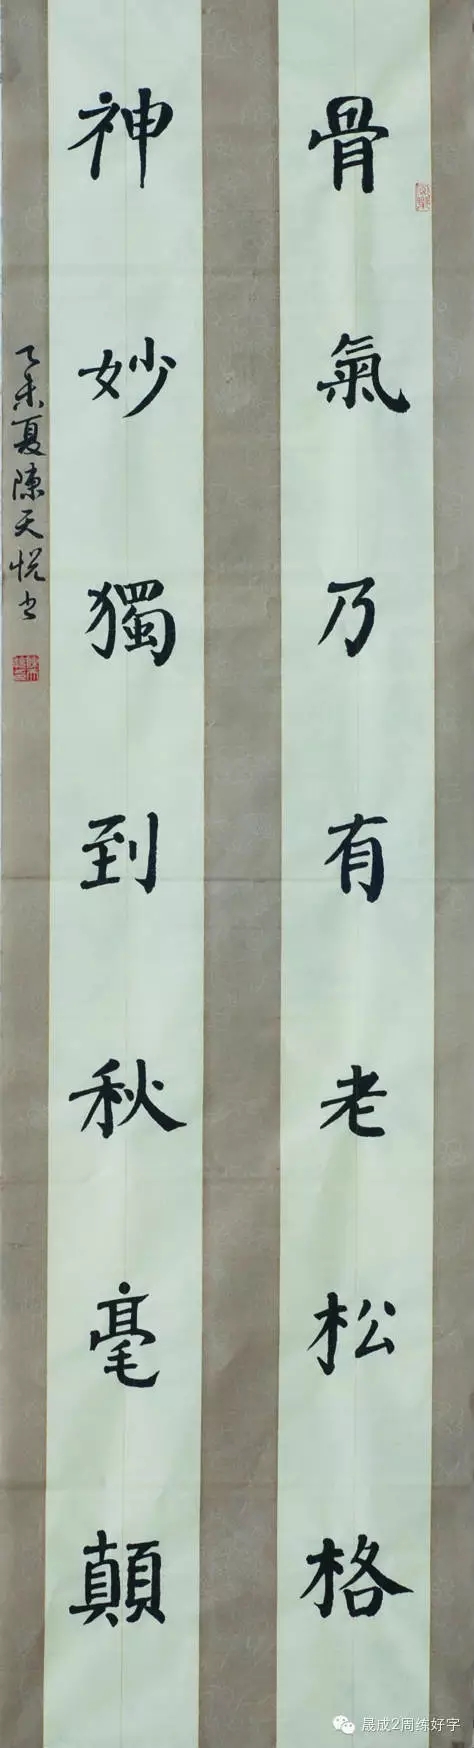 骨氣乃有老松格
神妙獨到秋毫顛
乙未夏陳天悅书
晟成2周练好字